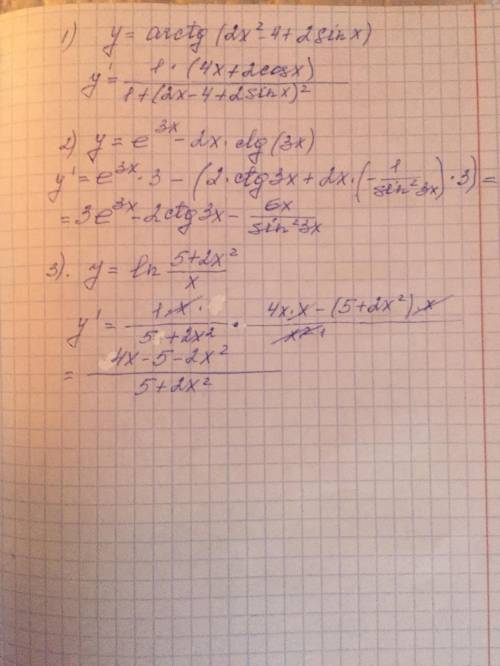 1) y = arctg (2x² - 4 + 2 sin x)
y' = 1 · (4x + 2cosx) / 1 + (2x - 4 + 2sinx)²
2) y = e^3x - 2x · ctg (3x)
y' = e^3x · 3 - (2 · ctg3x + 2x · (- 1/sin²3x) · 3) =
= 3e^3x - 2ctg3x - 6x/sin²3x
3). y = ln 5+2x²/x
y' = 1·x · / 5 + 2x² · 4x·x - (5+2x²)·x / x²
= 4x - 5 - 2x² / 5 + 2x²